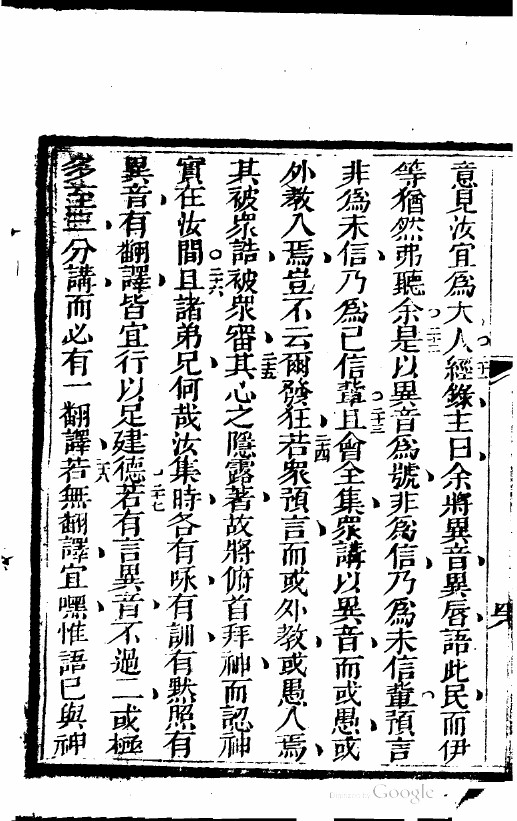 意見汝宜為大人二十一經錄主曰余將異音異唇語此民而伊
等猶然弗聽余二十二是以異音為號非為信乃為未信輩預言
非為未信乃為已信輩二十三且會全集眾講以異音而或愚或
外教入焉豈不云爾發狂二十四若眾預言而或外教或愚入焉
其被眾誥被眾審二十五其心之隱露著故將俯首拜神而認神
實在汝間二十六且諸弟兄何哉汝集時各有咏有訓有默照有
異音有翻譯皆宜行以足建德二十七若有言異音不過二或極
多至三分講而必有一翻譯二十八若無翻譯宜嘿惟語己與神
Digitized by Google